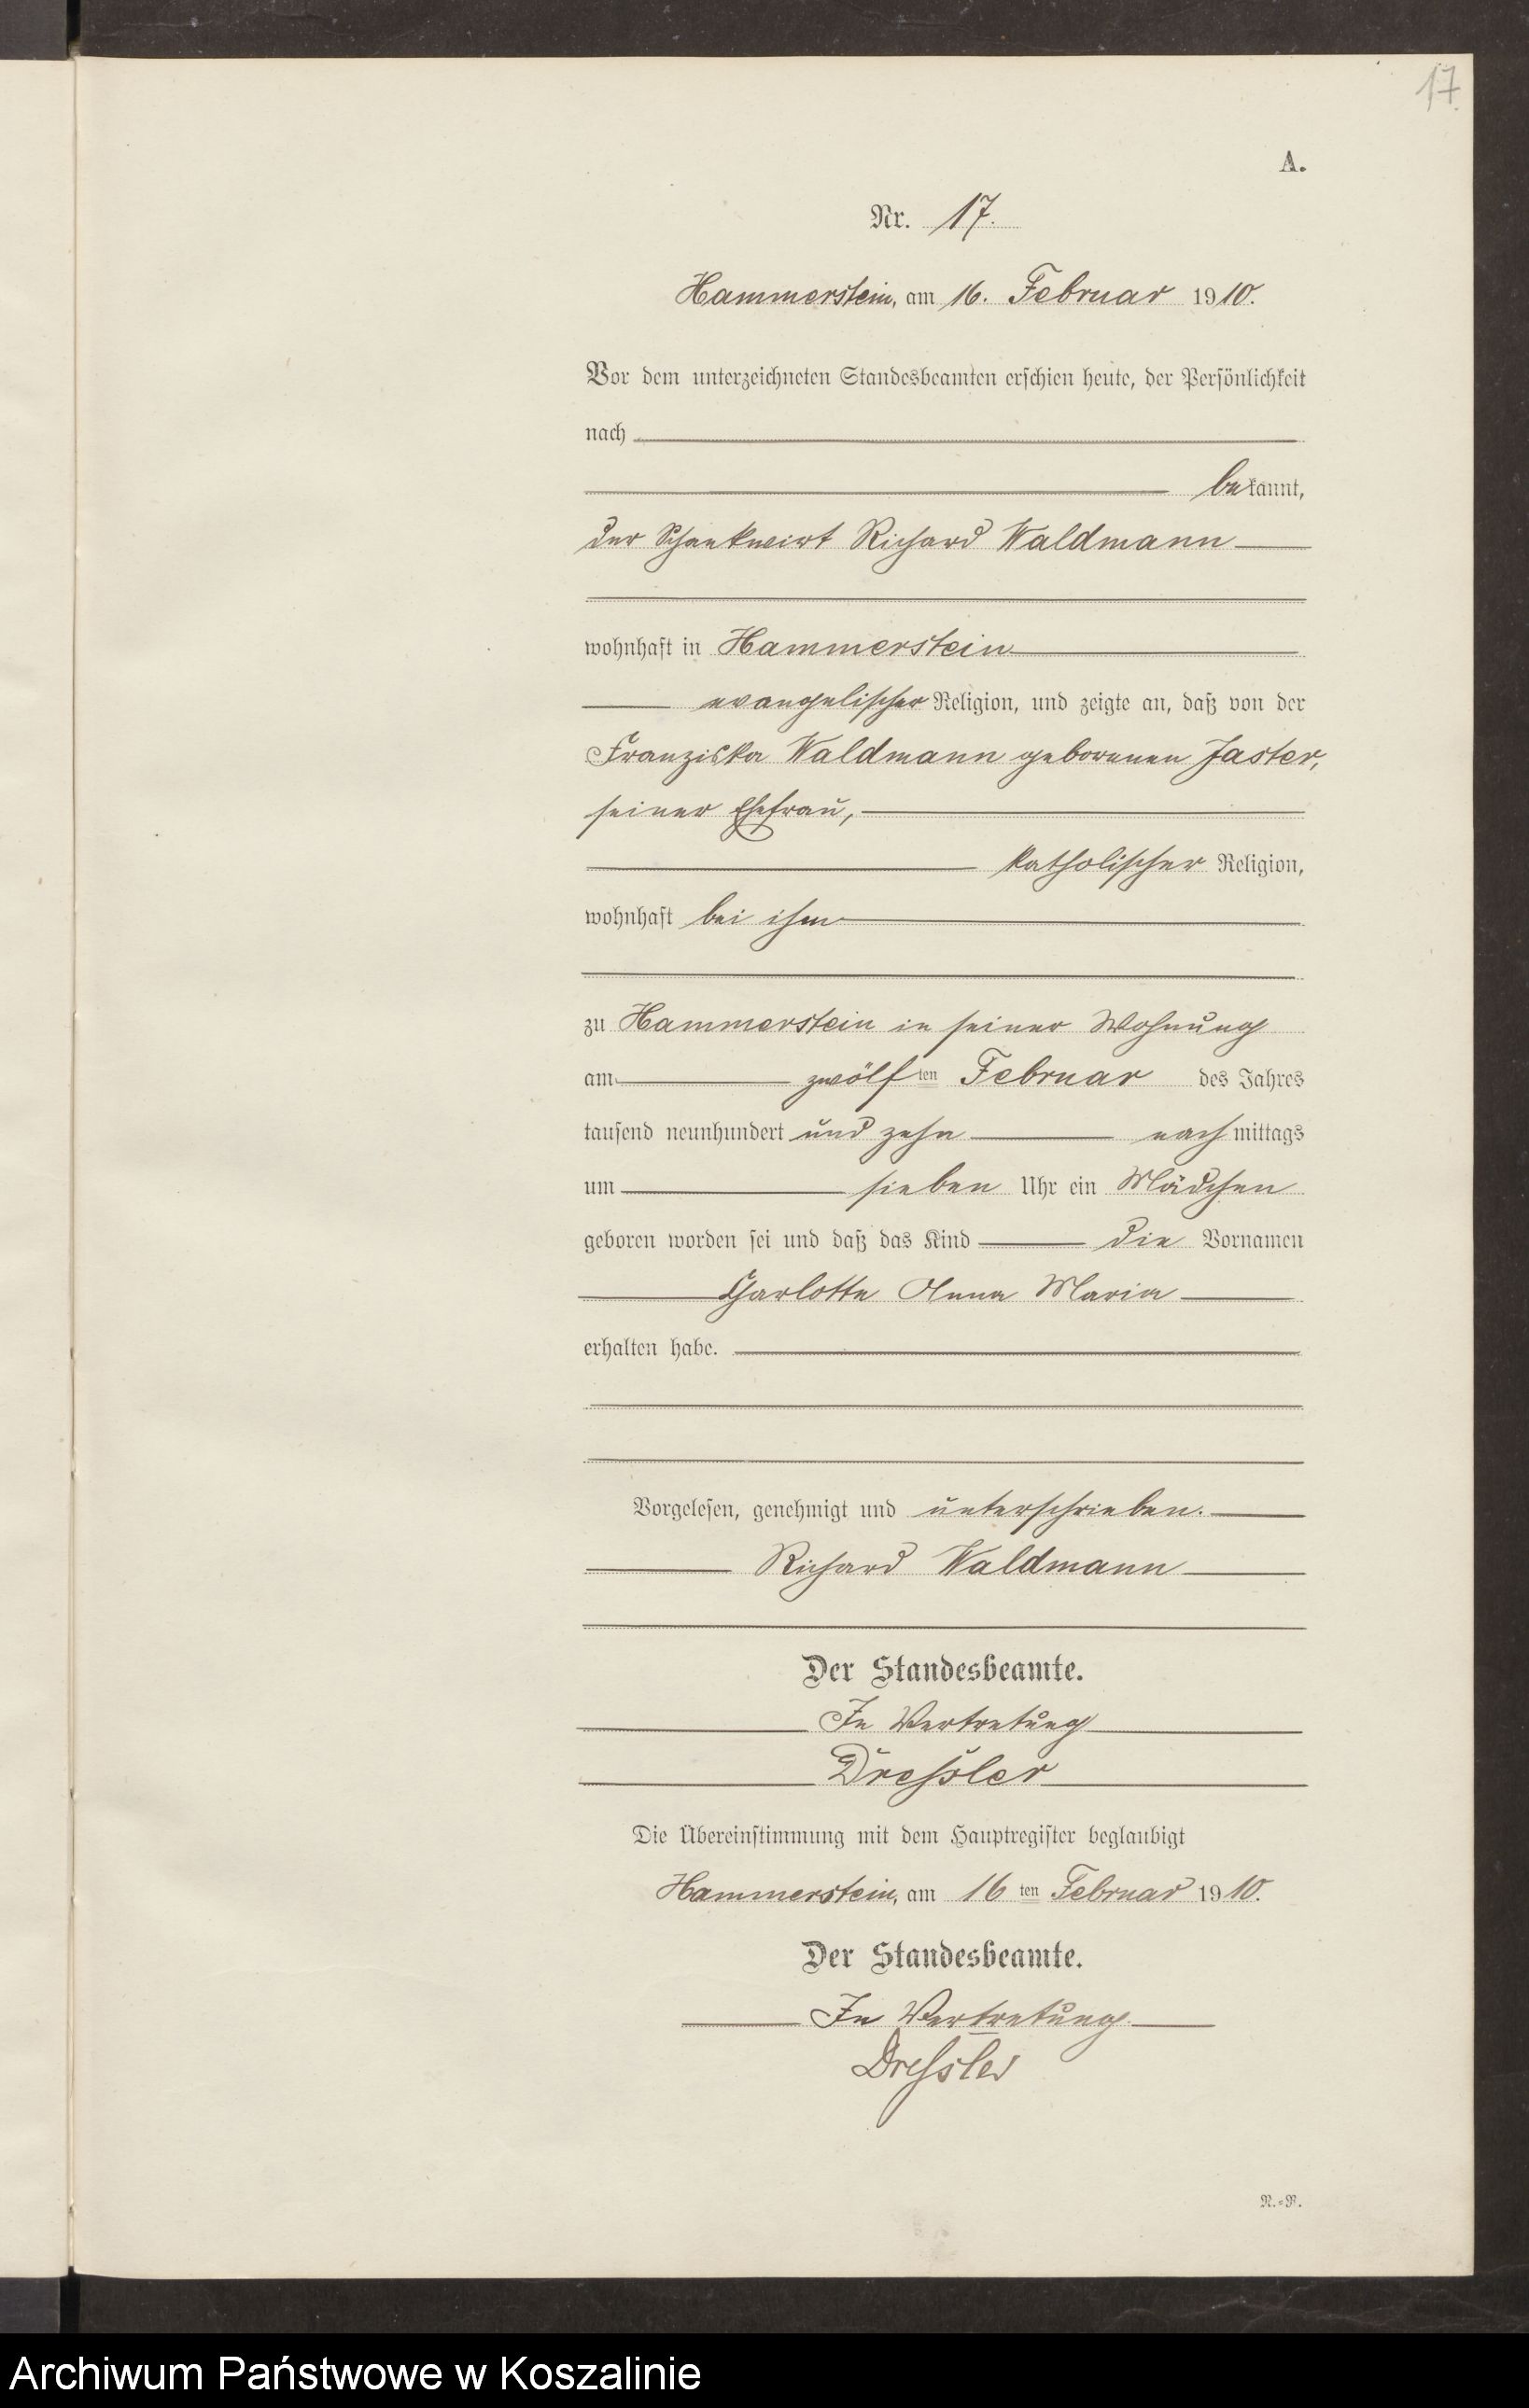 17.
A.
Nr. 17.
Hammerstein, am 16. Februar 1910.
Vor dem unterzeichneten Standesbeamten erschien heute, der Persönlichkeit
nach
bekannt,
der Schankwirt Richard Waldmann
wohnhaft in Hammerstein
evangelischer Religion, und zeigte an, daß von der
Franziska Waldmann geborenen Jaster,
seiner Ehefrau,
katholischer Religion,
wohnhaft bei ihm
zu Hammerstein in seiner Wohnung
am zwölf ten Februar des Jahres
tausend neunhundert und zehn nachmittags
um sieben Uhr ein Mädchen
geboren worden sei und daß das Kind die Vornamen
Charlotte Anna Maria
erhalten habe.
Vorgelesen, genehmigt und unterschrieben.
Richard Waldmann
Der Standesbeamte.
In Vertretung
Dressler
Die Übereinstimmung mit dem Hauptregister beglaubigt
Hammerstein, am 16 ten Februar 1910.
Der Standesbeamte.
In Vertretung.
Dressler
R.=R.
Archiwum Państwowe w Koszalinie